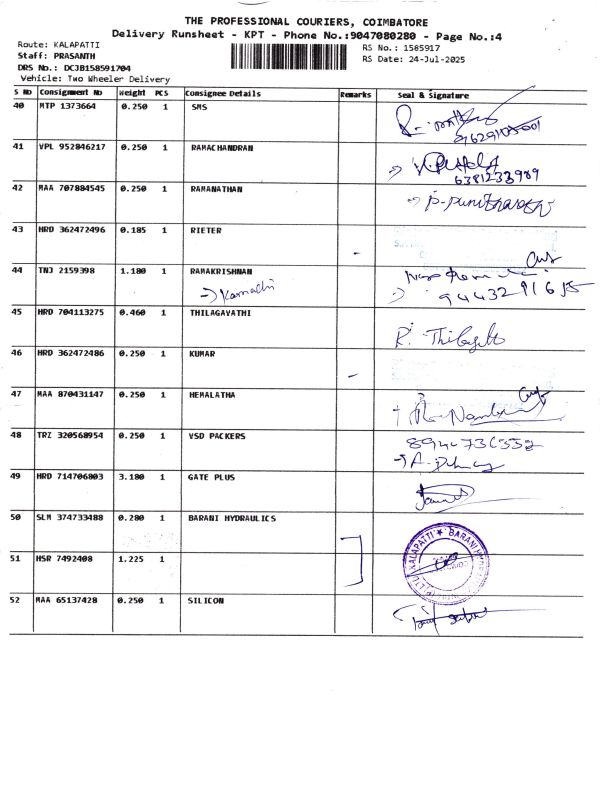 THE PROFESSIONAL COURIERS, COIMBATORE
Delivery Runsheet - KPT - Phone No.:9047080280 - Page No.:4
Route: KALAPATTI
Staff: PRASANTH
DRS No.: DCJB158591704
Vehicle: Two Wheeler Delivery
RS No.: 1585917
RS Date: 24-Jul-2025
S No Consignment No Weight PCS Consignee Details Remarks Seal & Signature
40 MTP 1373664 0.250 1 SMS
41 VPL 952846217 0.250 1 RAMACHANDRAN
6381233989
42 MAA 707884545 0.250 1 RAMANATHAN
43 HRD 362472496 0.185 1 RIETER
44 TNJ 2159398 1.180 1 RAMAKRISHNAN
45 HRD 704113275 0.460 1 THILAGAVATHI
R. Thilagavathi
46 HRD 362472486 0.250 1 KUMAR
47 MAA 870431147 0.250 1 HEMALATHA
48 TRZ 320568954 0.250 1 VSD PACKERS
49 HRD 714706803 3.180 1 GATE PLUS
50 SLM 374733488 0.280 1 BARANI HYDRAULICS
KALAPATTI ★ BARANI
51 HSR 7492408 1.225 1
52 MAA 65137428 0.250 1 SILICON